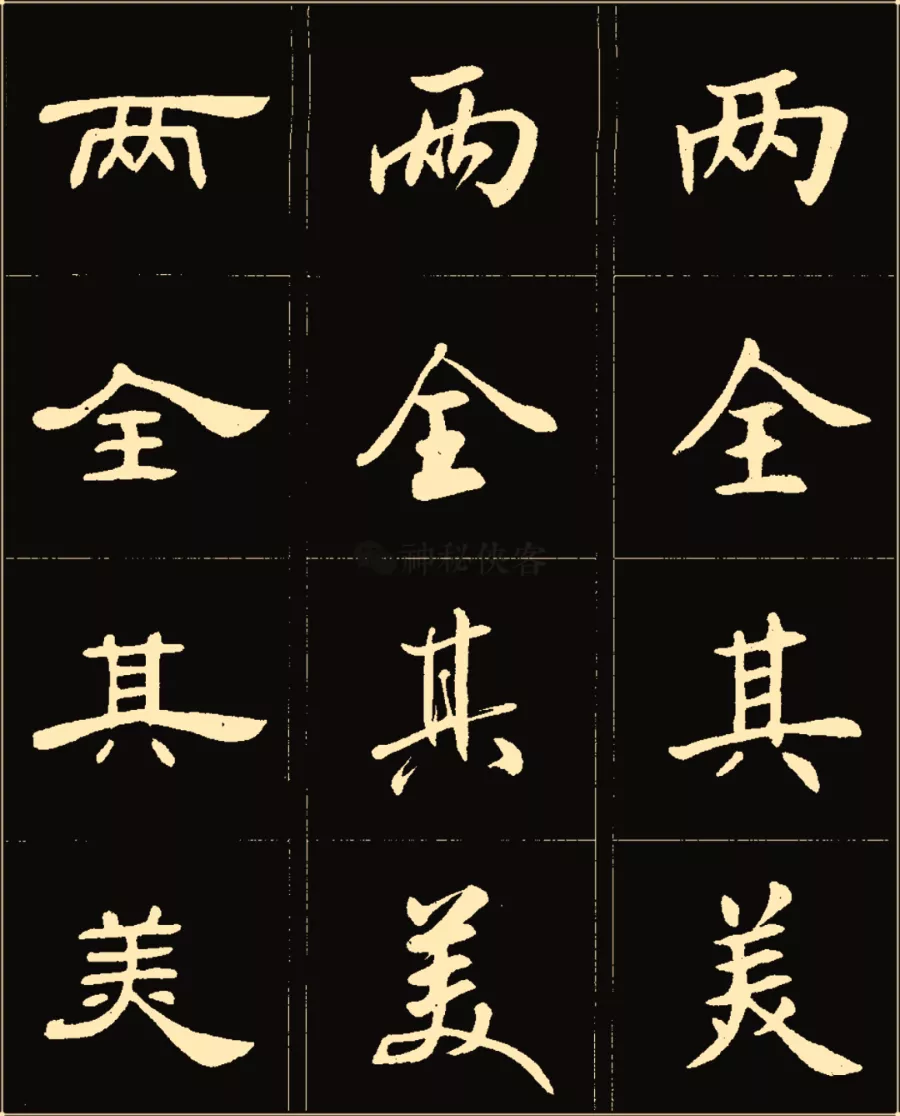 两 两 两
全 全 全
神秘侠客
其 其 其
美 美 美